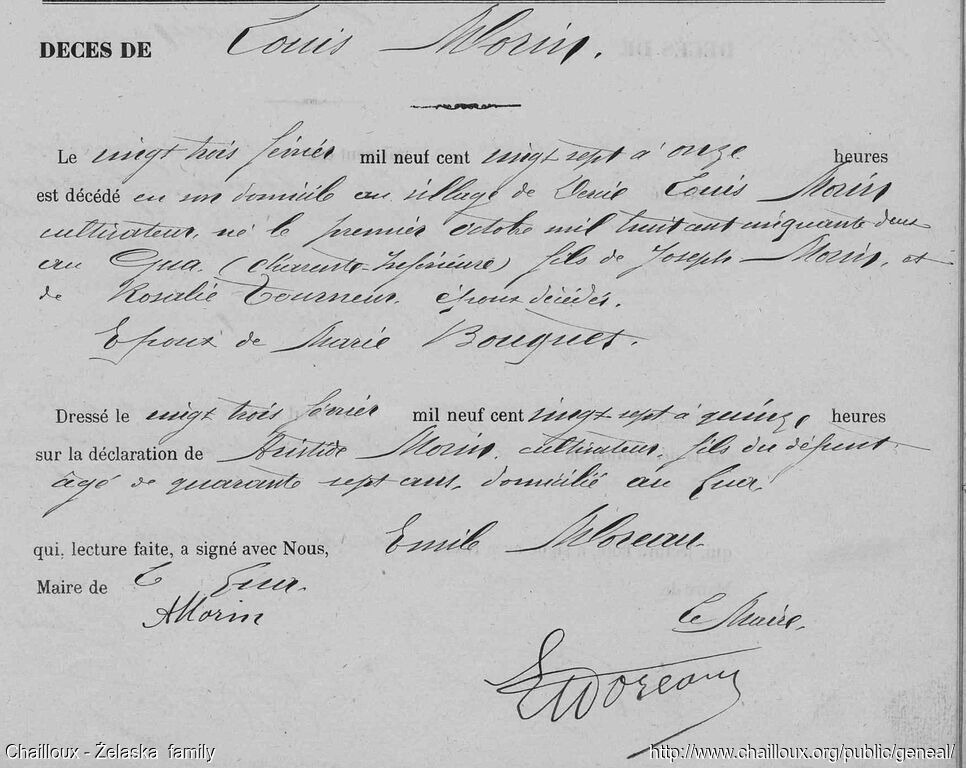 DECES DE Louis Morin.
Le vingt trois février mil neuf cent vingt sept à onze heures
est décédé en son domicile au village de Louis Morin
cultivateur, né le premier octobre mil huit cent cinquante deux
au Gua (Charente-Inférieure) fils de Joseph Morin, et
de Rosalie Tourneur. époux décédés.
Epoux de Marie Bouquet.
Dressé le vingt trois février mil neuf cent vingt sept à quinze heures
sur la déclaration de Aristide Morin, cultivateur, fils du défunt
âgé de quarante sept ans, domicilié au Gua,
qui, lecture faite, a signé avec Nous, Emile Moreau
Maire de Le Gua.
AMorin
Le Maire,
EMoreau
Chailloux - Żelaska family
http://www.chailloux.org/public/geneal/